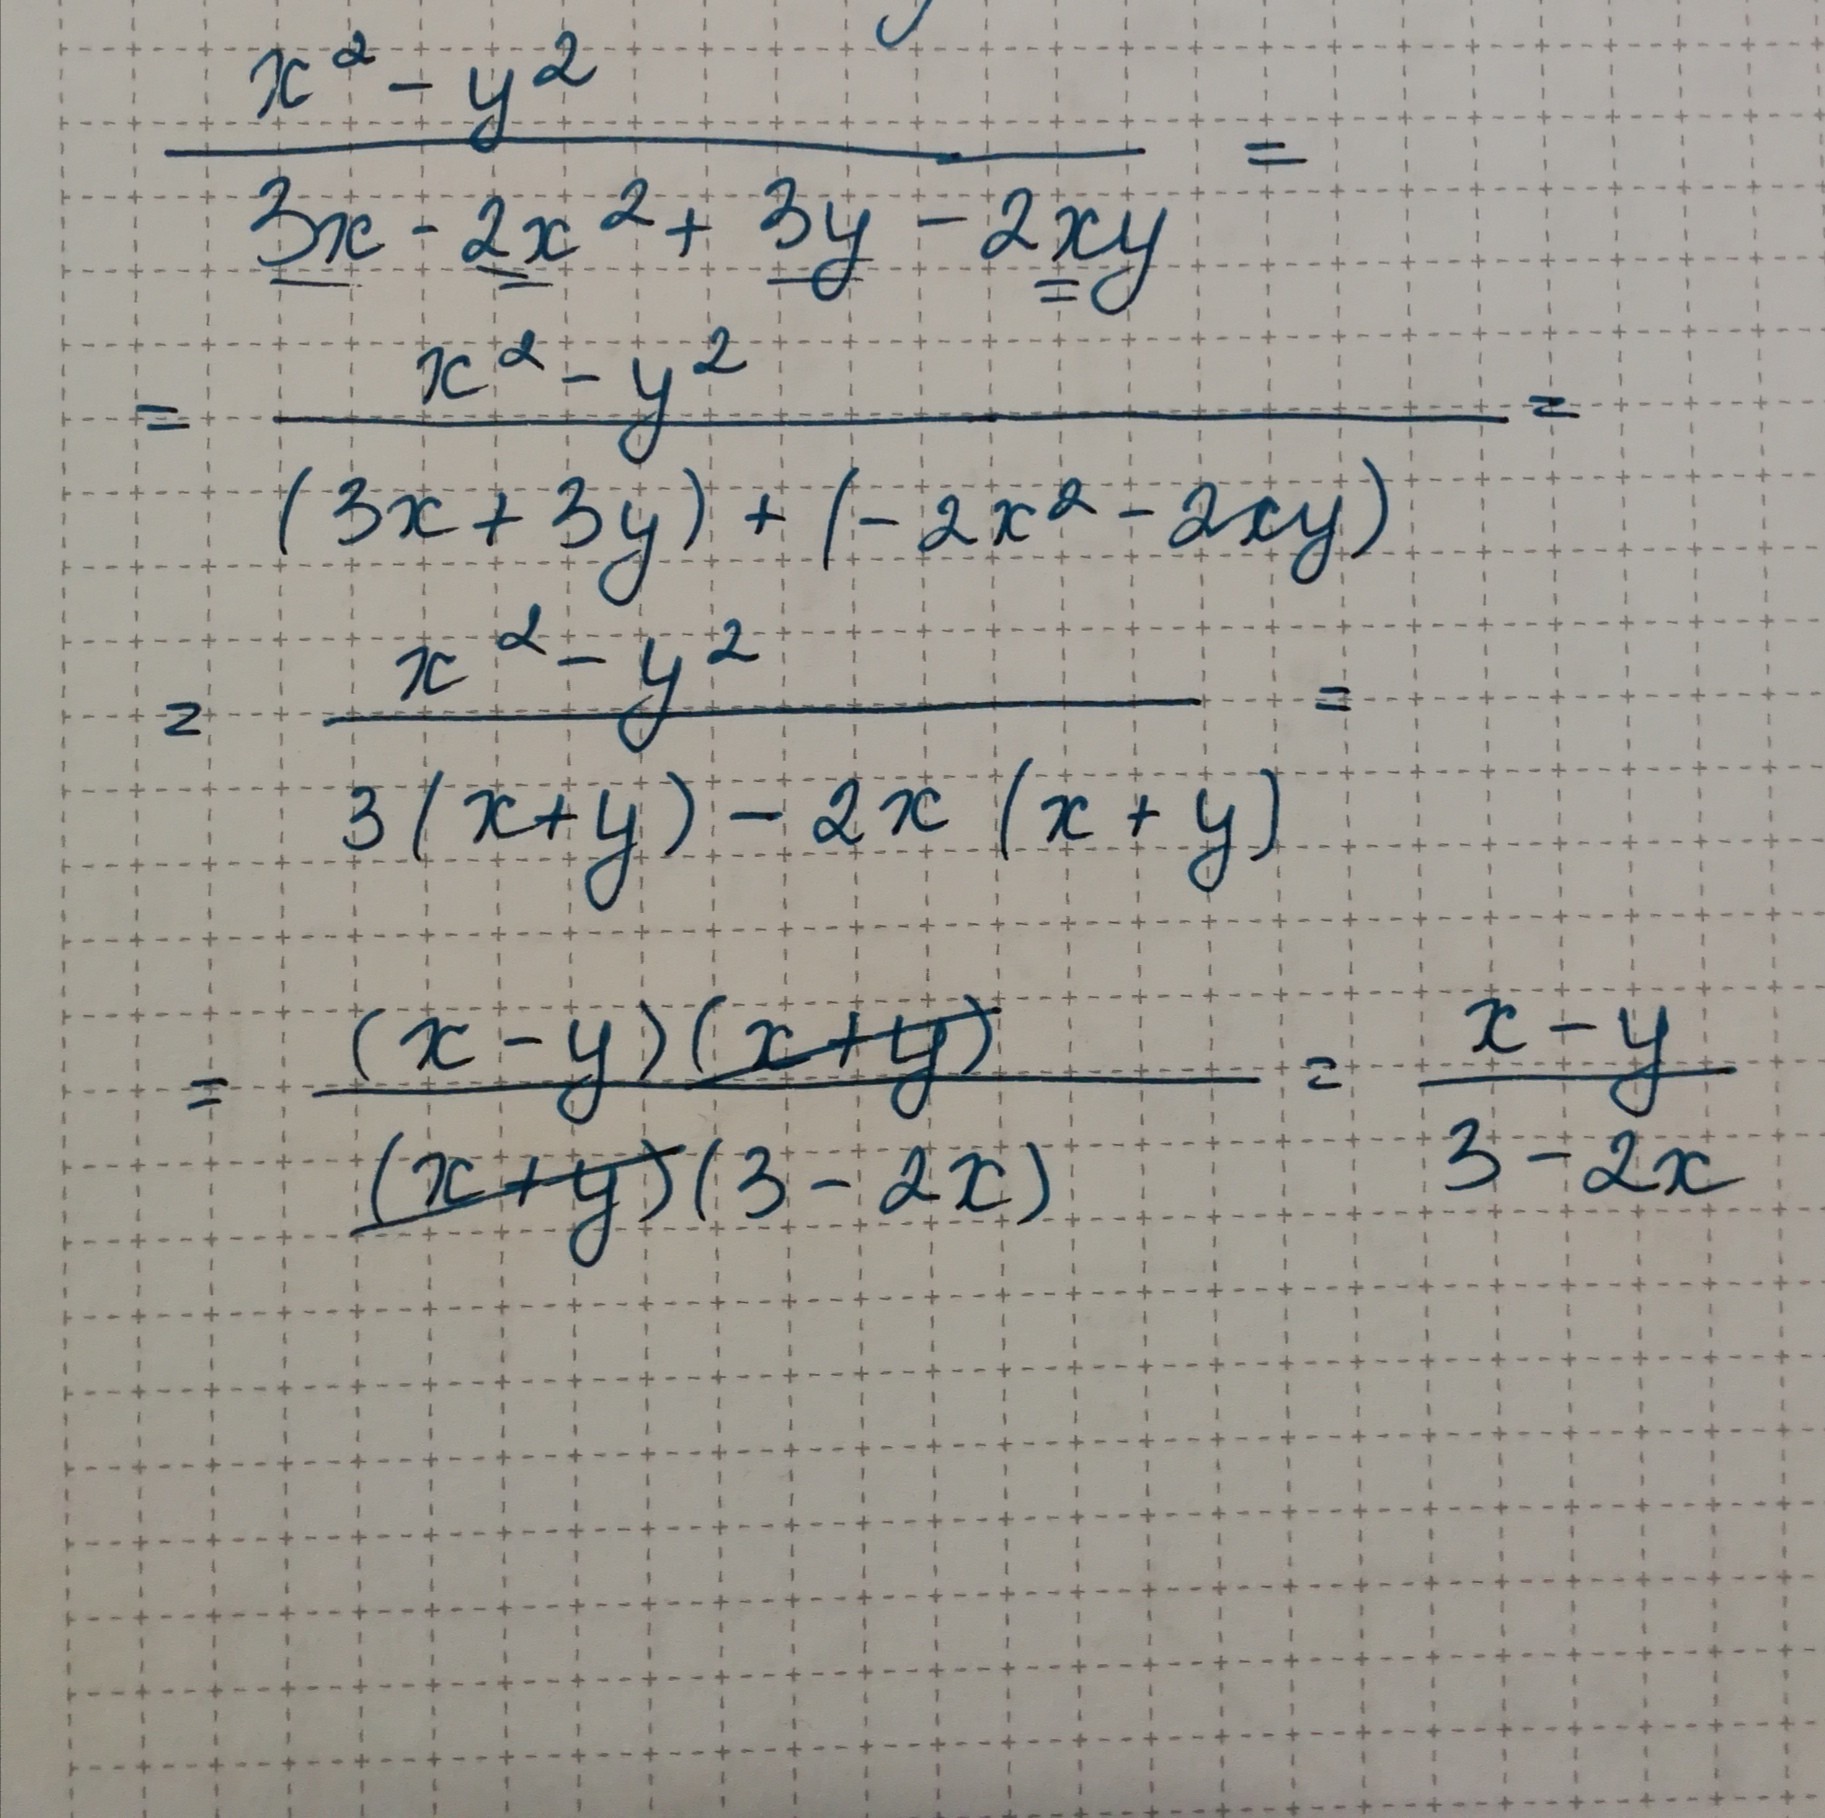 x² - y²
3x - 2x² + 3y - 2xy =
= x² - y² =
(3x + 3y) + (- 2x² - 2xy)
= x² - y² =
3(x+y) - 2x (x + y)
= (x - y)(x + y) = x - y
(x + y)(3 - 2x) 3 - 2x